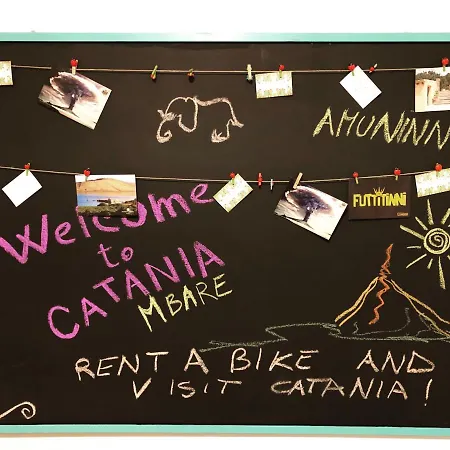 AMUNINN
FUTTITINNI
Welcome
to
CATANIA
MBARE
RENT A BIKE AND
VISIT CATANIA!